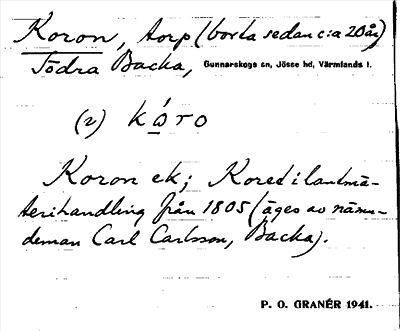 Koron, torp (borta sedan c:a 20 år)
Södra Backa, Gunnarskogs sn, Jösse hd, Värmlands l.
(2) kóro
Koron ek; Kored i lantmä-
terihandling från 1805 (äges av nämn-
deman Carl Carlsson, Backa).
P. O. GRANÉR 1941.